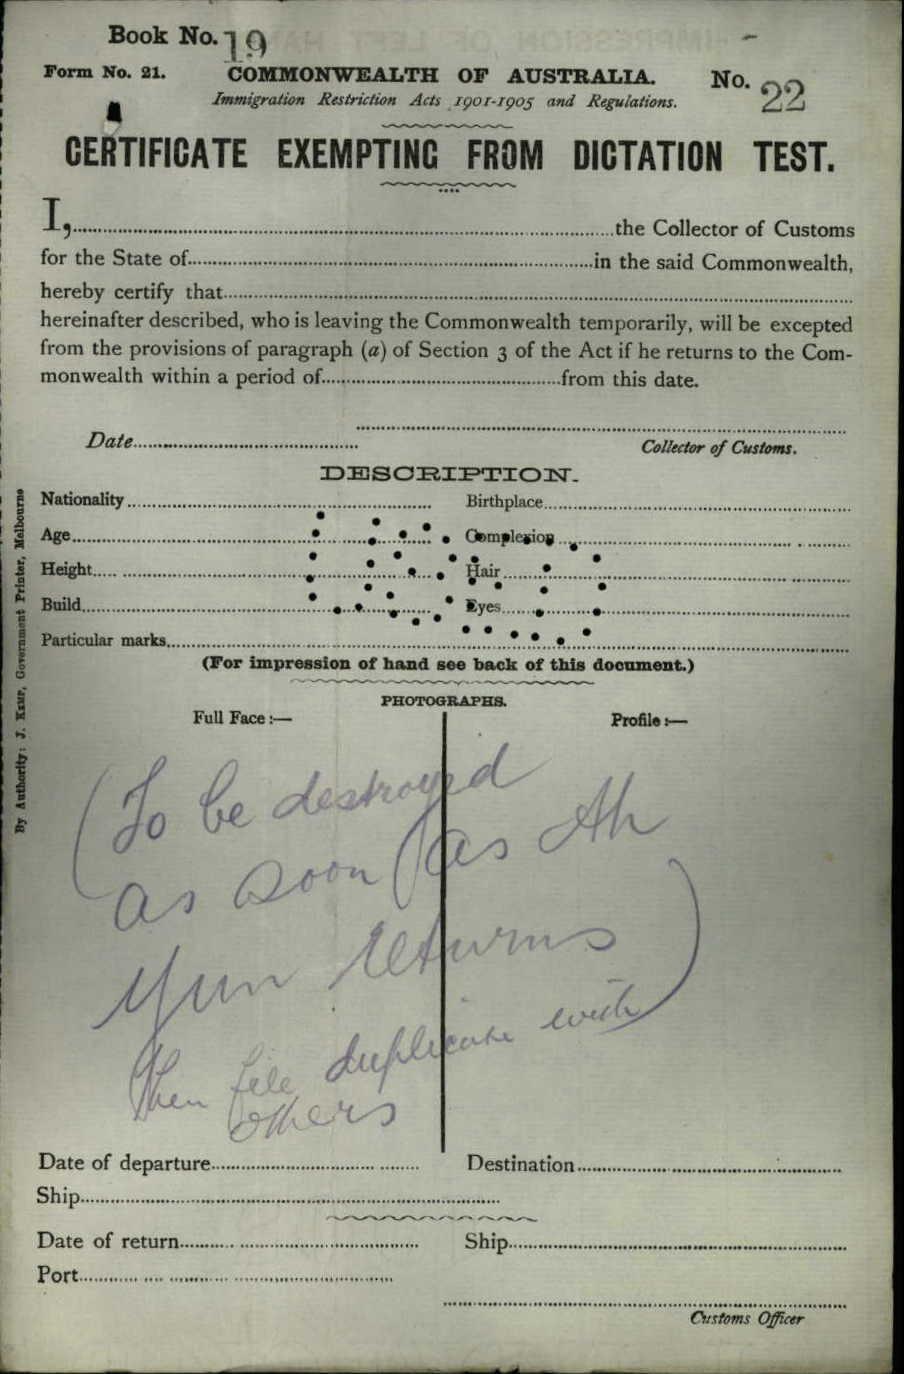 Book No. 19
Form No. 21.
COMMONWEALTH OF AUSTRALIA.
No. 22
Immigration Restriction Acts 1901-1905 and Regulations.
CERTIFICATE EXEMPTING FROM DICTATION TEST.
I, the Collector of Customs
for the State of in the said Commonwealth,
hereby certify that
hereinafter described, who is leaving the Commonwealth temporarily, will be excepted
from the provisions of paragraph (a) of Section 3 of the Act if he returns to the Com-
monwealth within a period of from this date.
Date
Collector of Customs.
DESCRIPTION.
Nationality Birthplace
Age Complexion
Height Hair
Build Eyes
Particular marks
(For impression of hand see back of this document.)
PHOTOGRAPHS.
Full Face:— Profile:—
(To be destroyed
as soon (as Ah
Yun returns
then file duplicate with)
others
Date of departure Destination
Ship
Date of return Ship
Port
Customs Officer
By Authority: J. KEMP, Government Printer, Melbourne